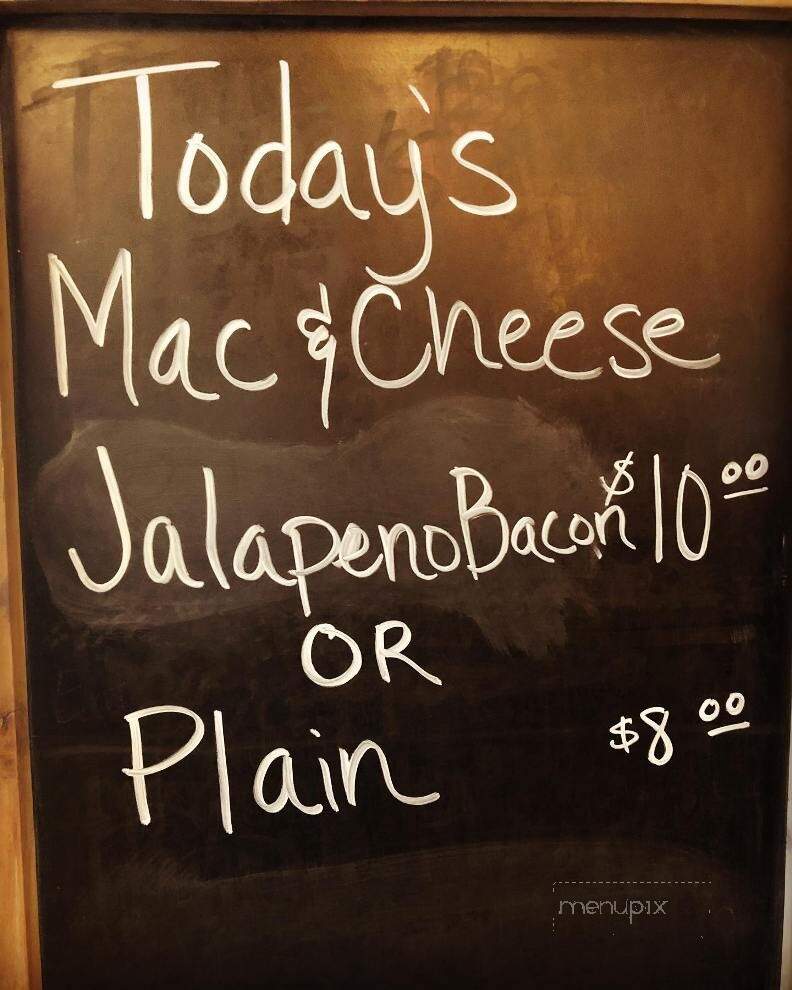 Today's
Mac & Cheese
Jalapeno Bacon $10.00
OR
Plain $8.00
menupix